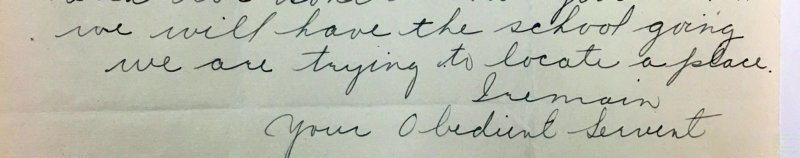 we will have the school going
we are trying to locate a place.
I remain
Your Obedient Servent